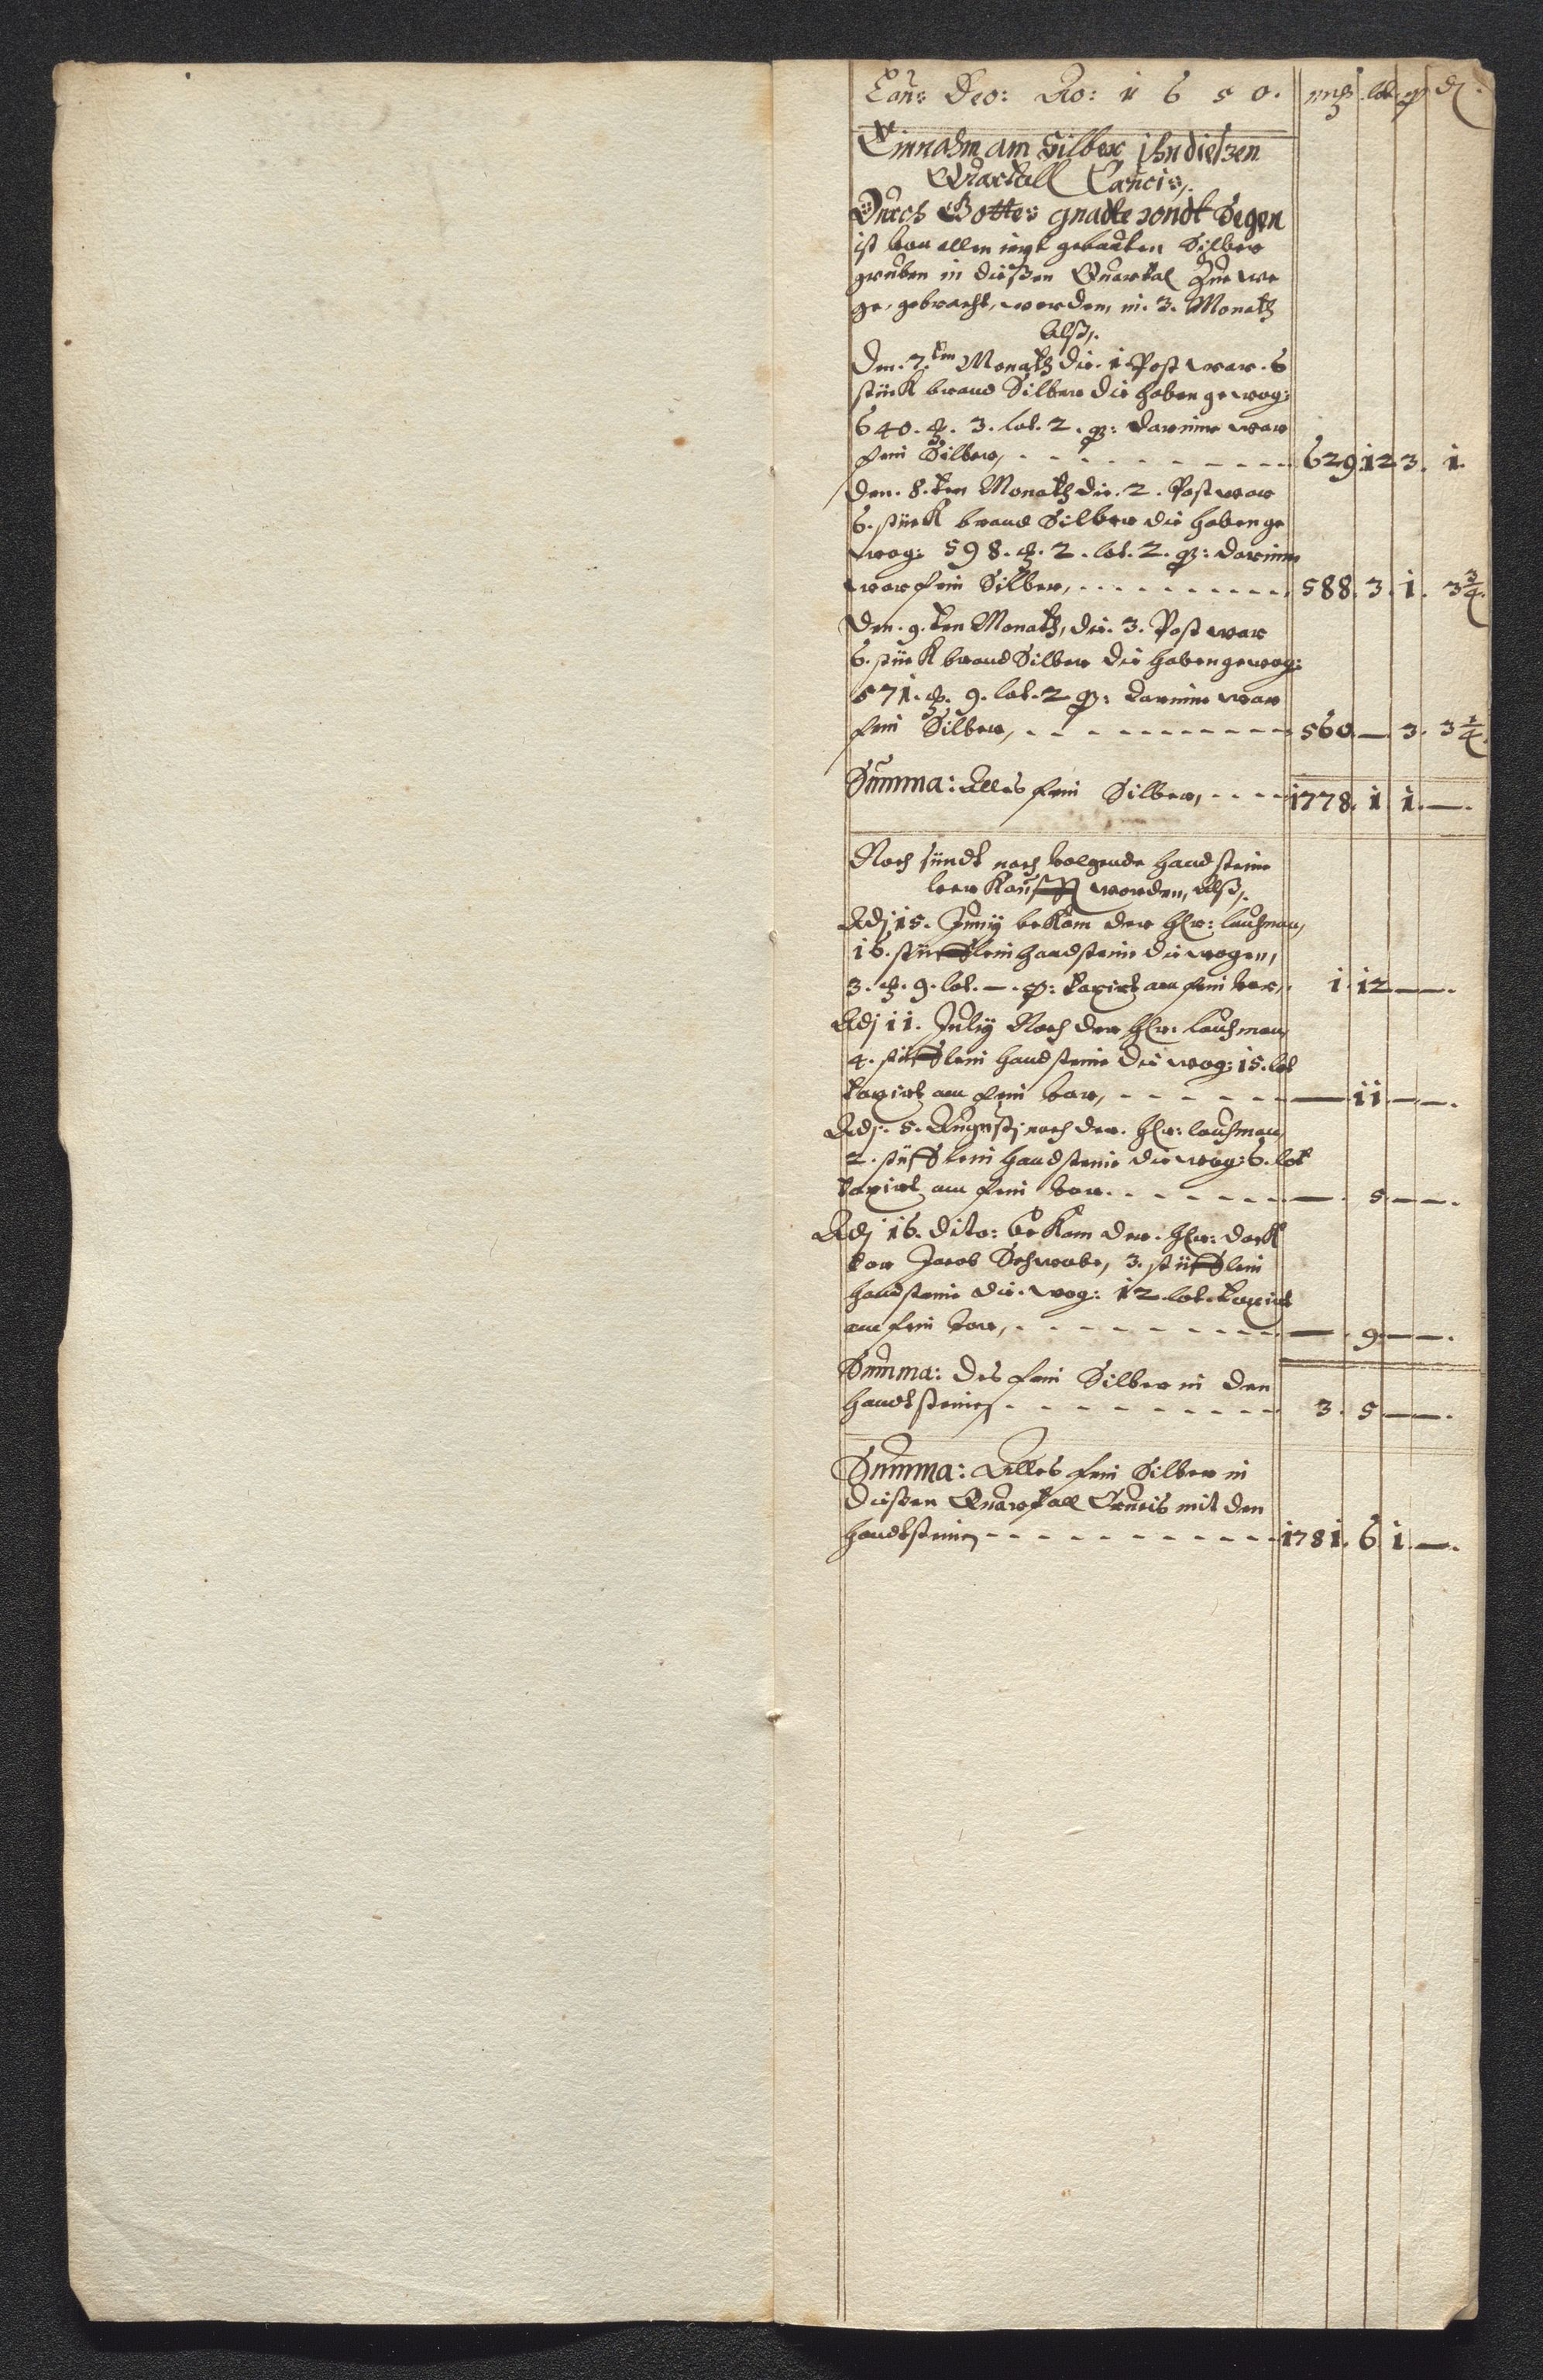 Laus Deo: Ao: 1650. mß lot q d
Einnahm am Silber jhn dießen
Quartall Crucis,
Durch Gottes gnadte vondt Segen
ist von allen ietzt gebauten Silber
gruben in dießen Quartal Zue we
ge, gebracht, worden, in. 3. Monath
Alß,
Den. 7.ten Monath die. 1. Post war. 6
stück brand Silber die haben gewog:
640. 3. lot. 2. q: darinne war
fein Silber, 629. 12 3. 1.
Den. 8.ten Monath die. 2. Post war
6. stück brand Silber die haben ge
wog: 598. 2. lot. 2. q: darinne
war fein Silber, 588. 3. 1. 3 3/4.
Den. 9.ten Monath, die. 3. Post war
6. stück brand Silber die haben gewog:
571. 9. lot. 2 q: darinne war
fein Silber, 560 — 3. 3 1/4.
Summa: Alles fein Silber, 1778. 1 1. —.
Noch sindt nach volgende handsteine
worden, Alß,
Adj 15. Junij bekam der Hr:
16. stücklein handsteine die wogen,
3. 9. lot. —. q: taxirt am fein 1 12 — —.
Adj 11. Julij Noch der Hr:
4. stücklein handsteine die wog: 15. lot
taxirt am fein — 11 — —.
Adj. 5. Augustj noch der. Hr:
2. stücklein handsteine die wog: 6. lot
taxirt am fein — 5 — —.
Adj 16. dito: bekam der. Hr: dock
tor Jacob Schwabe, 3. stücklein
handsteine die. wog: 12. lot. taxirt
am fein — 9 — —.
Summa: des fein Silber in den
handtsteinen 3. 5 — —.
Summa: Alles fein Silber in
dießen Quartall Crucis mit den
handtsteinen 1781. 6 1. —.